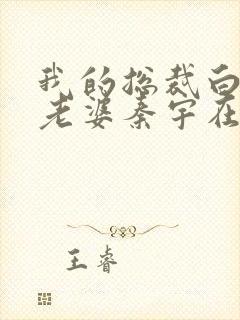 我的总裁白
老婆秦宇在
王睿